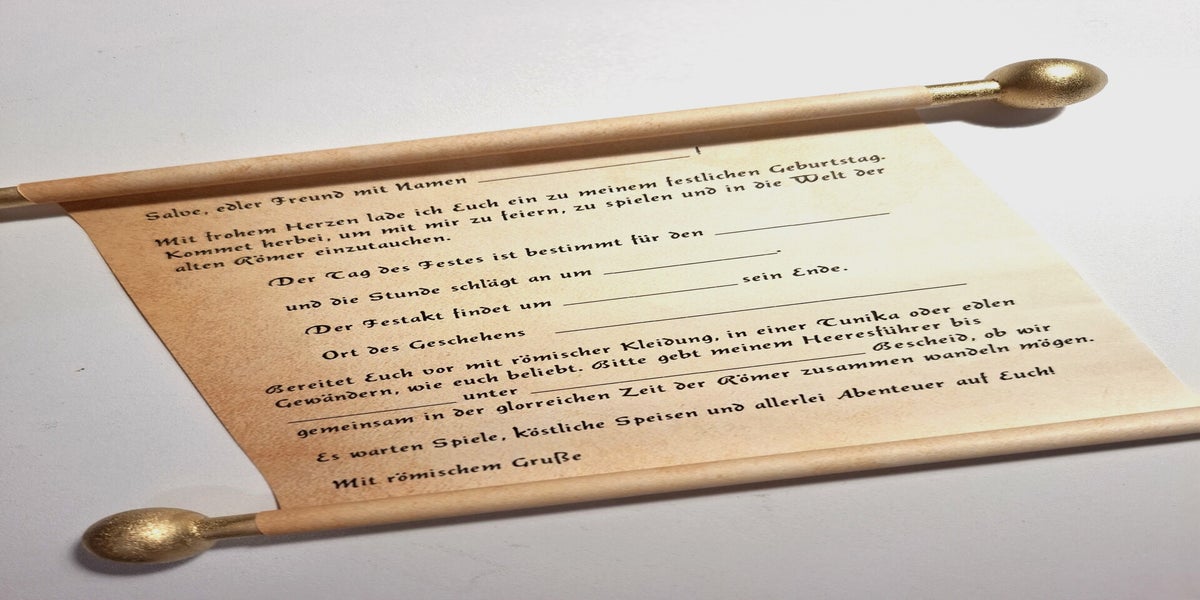 Salve, edler Freund mit Namen ____________________
Mit frohem Herzen lade ich Euch ein zu meinem festlichen Geburtstag.
Kommet herbei, um mit mir zu feiern, zu spielen und in die Welt der
alten Römer einzutauchen.
Der Tag des Festes ist bestimmt für den ____________________
und die Stunde schlägt an um ____________________.
Der Festakt findet um ____________________ sein Ende.
Ort des Geschehens ____________________
Bereitet Euch vor mit römischer Kleidung, in einer Tunika oder edlen
Gewändern, wie euch beliebt. Bitte gebt meinem Heeresführer bis
____________________ unter ____________________ Bescheid, ob wir
gemeinsam in der glorreichen Zeit der Römer zusammen wandeln mögen.
Es warten Spiele, köstliche Speisen und allerlei Abenteuer auf Euch!
Mit römischem Gruße